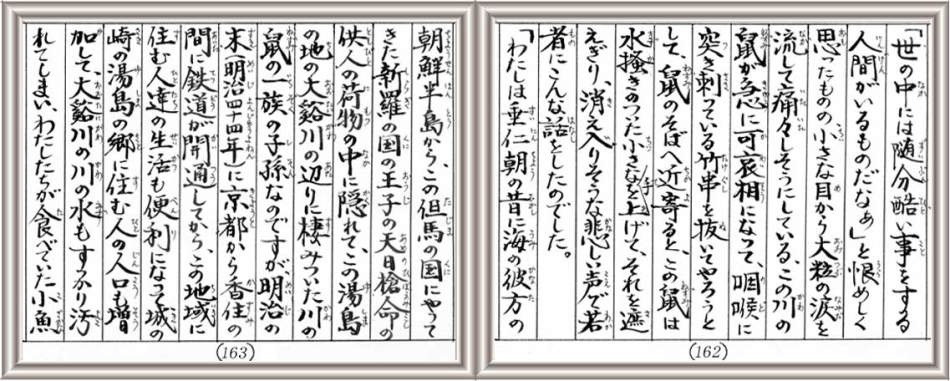 「世の中には随分酷い事をする
人間がいるものだなぁ」と恨めしく
思ったものの小さな目から大粒の涙を
流して痛々しそうにしている、この川の
鼠が急に可哀相になって、咽喉に
突き刺っている竹串を抜いてやろうと
して、鼠のそばへ近寄ると、この鼠は
水掻きのつた小さな手を上げて、それを遮
えぎり、消え入りそうな悲しい声で若
者にこんな話をしたのでした。
「わたしは垂仁朝の昔に海の彼方の
(162)
朝鮮半島から、この但馬の国にやって
きた新羅の国の王子の天日槍命の
供人の荷物の中に隠れて、この湯島
の地の大谿川の辺りに棲みついた川の
鼠の一族の子孫なのですが、明治の
末(明治四十四年)に京都から香住の
間に鉄道が開通してから、この地域に
住む人達の生活も便利になって城の
崎の湯島の郷に住む人の人口も増
加して、大谿川の川の水もすっかり汚
れてしまい、わたしたちが食べていた小魚
(163)